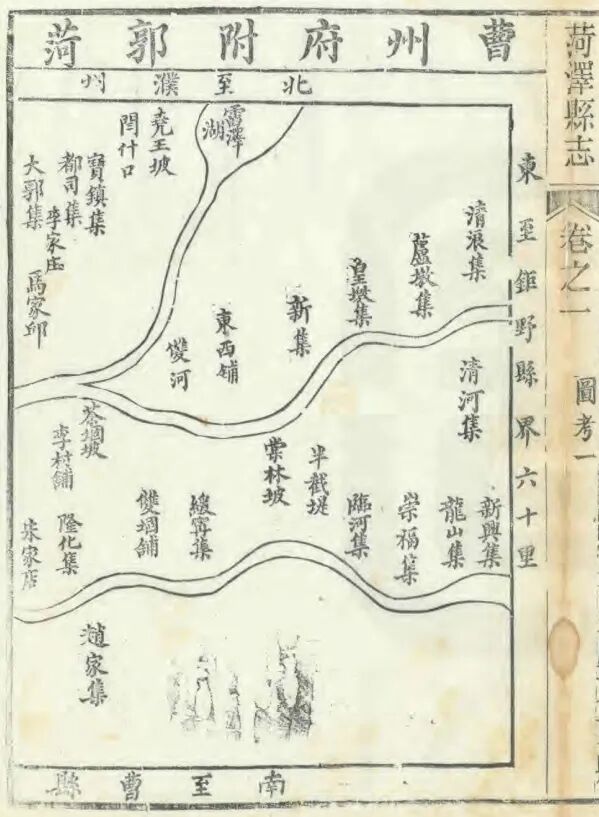 菏澤縣志
卷之一
圖考一
曹州府附郭菏
北至濮州
東至鉅野縣界六十里
清浪集
蘆墩集
皇墩集
新集
東西鋪
雙河
雷澤湖
堯王坡
閆什口
寶鎮集
都司集
李家庄
大郭集
馬家邱
清河集
半截堤
棠林坡
李村鋪
新興集
龍山集
崇福集
臨河集
緩寧集
雙堌鋪
隆化集
朱家店
趙家集
南至曹縣